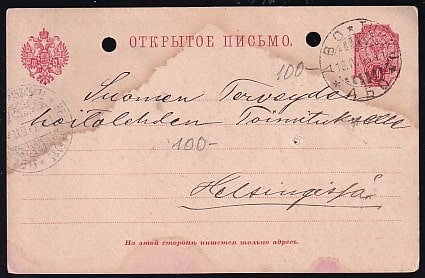 ОТКРЫТОЕ ПИСЬМО.
100-
Suomen Terveyden
hoitolehden Toimitukselle
100-
Helsingissä
На этой сторонѣ пишется только адресъ.